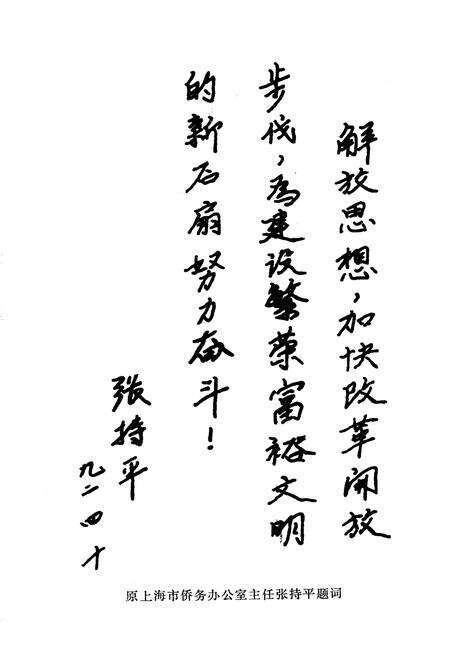 解放思想，加快改革开放
步伐，为建设繁荣富裕文明
的新石扇努力奋斗！
张持平
九二四十
原上海市侨务办公室主任张持平题词